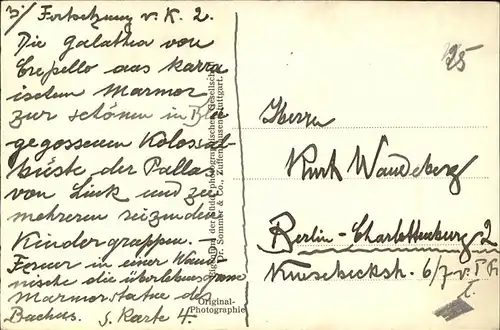 3/ Fortsetzung v. K. 2.
Die Galathea von
Crepello aus karra
ischem Marmor
zur schönen in Blei
gegossenen Kolossal-
büste der Pallas
von Link und zu
mehreren reizenden
Kindergruppen.
Ferner in einer Wand
nische die überlebensgrosse
Marmorstatue des
Bachus. S. Karte 4.
Süddeutsche photographische Gesellschaft
Dr. Sommer & Co., Zuffenhausen-Stuttgart.
Original-
Photographie
25
Herrn
Kurt Wandeberg
Berlin-Charlottenburg 2
Knesebeckstr. 6/7 v.
I.